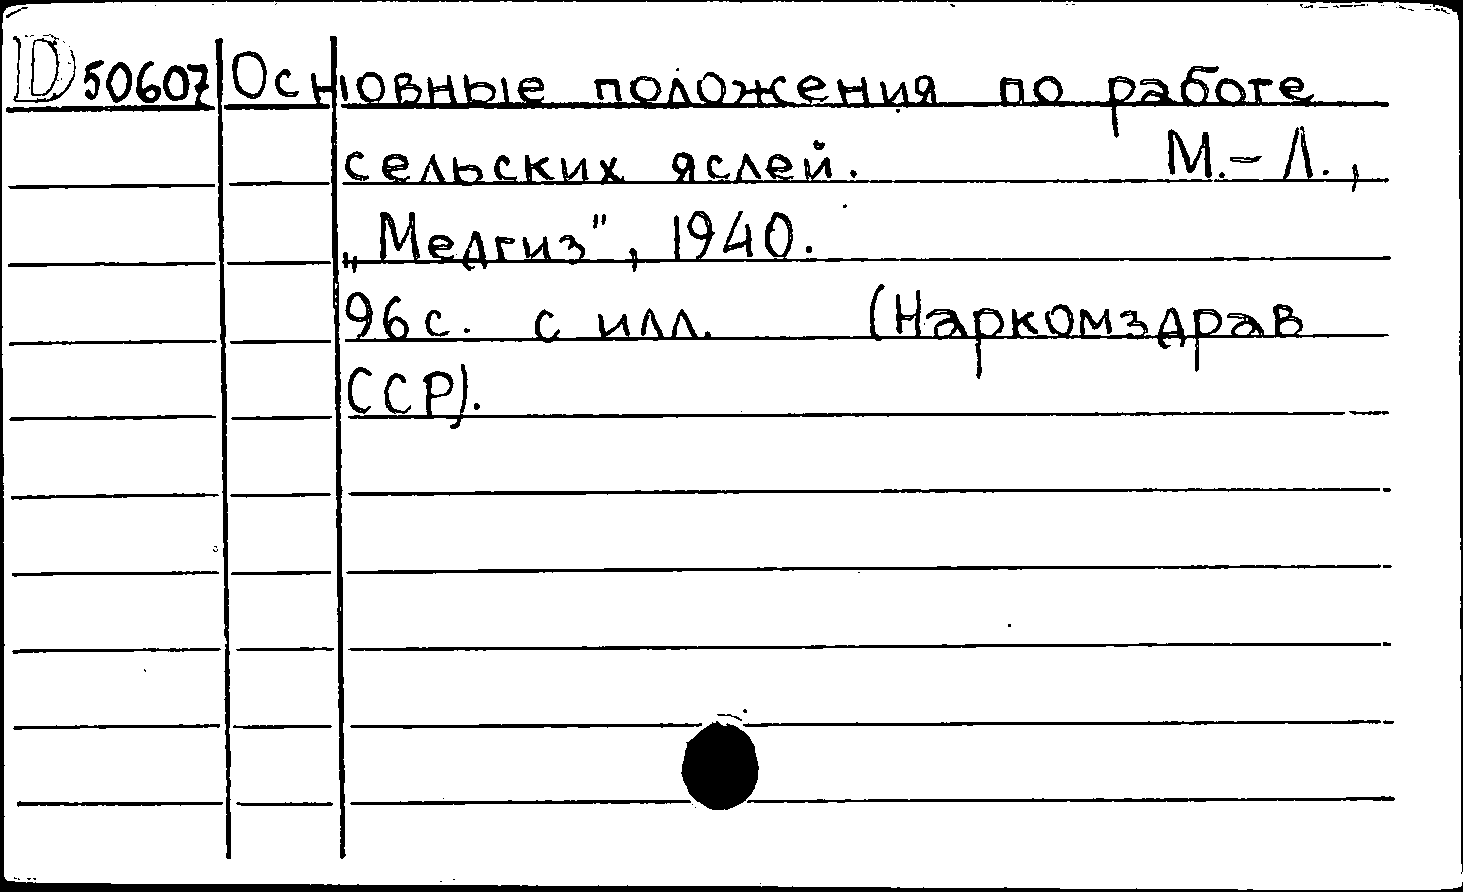 D 50607 Основные положения по работе
сельских яслей. М.-Л.,
„Медгиз", 1940.
96 с. с илл. (Наркомздрав
ССР).